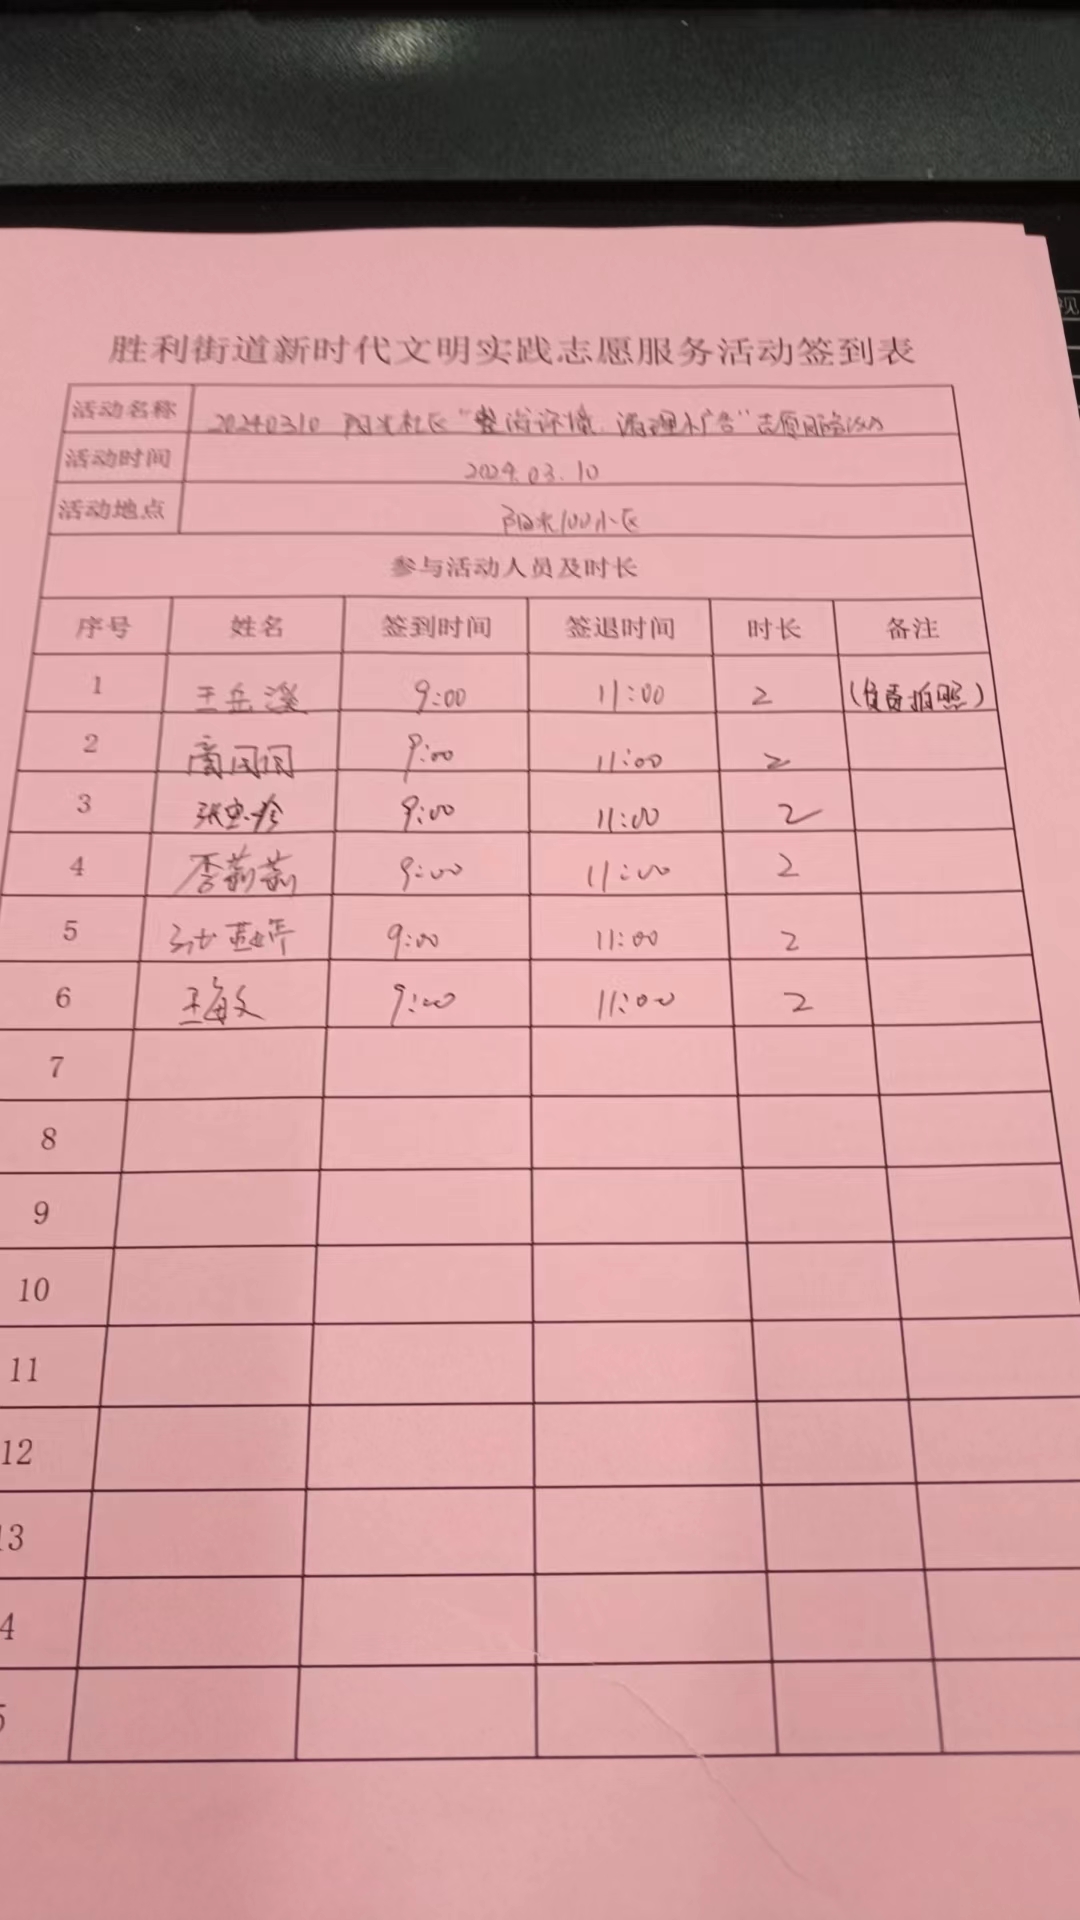 胜利街道新时代文明实践志愿服务活动签到表
活动名称 20240310 阳光社区“整治环境、清理小广告”志愿服务活动
活动时间 2024.03.10
活动地点 阳光100小区
参与活动人员及时长
序号 姓名 签到时间 签退时间 时长 备注
1 王岳溪 9:00 11:00 2 (负责拍照)
2 9:00 11:00 2
3 9:00 11:00 2
4 李莉莉 9:00 11:00 2
5 9:00 11:00 2
6 王海文 9:00 11:00 2
7
8
9
10
11
12
13
4
5
视